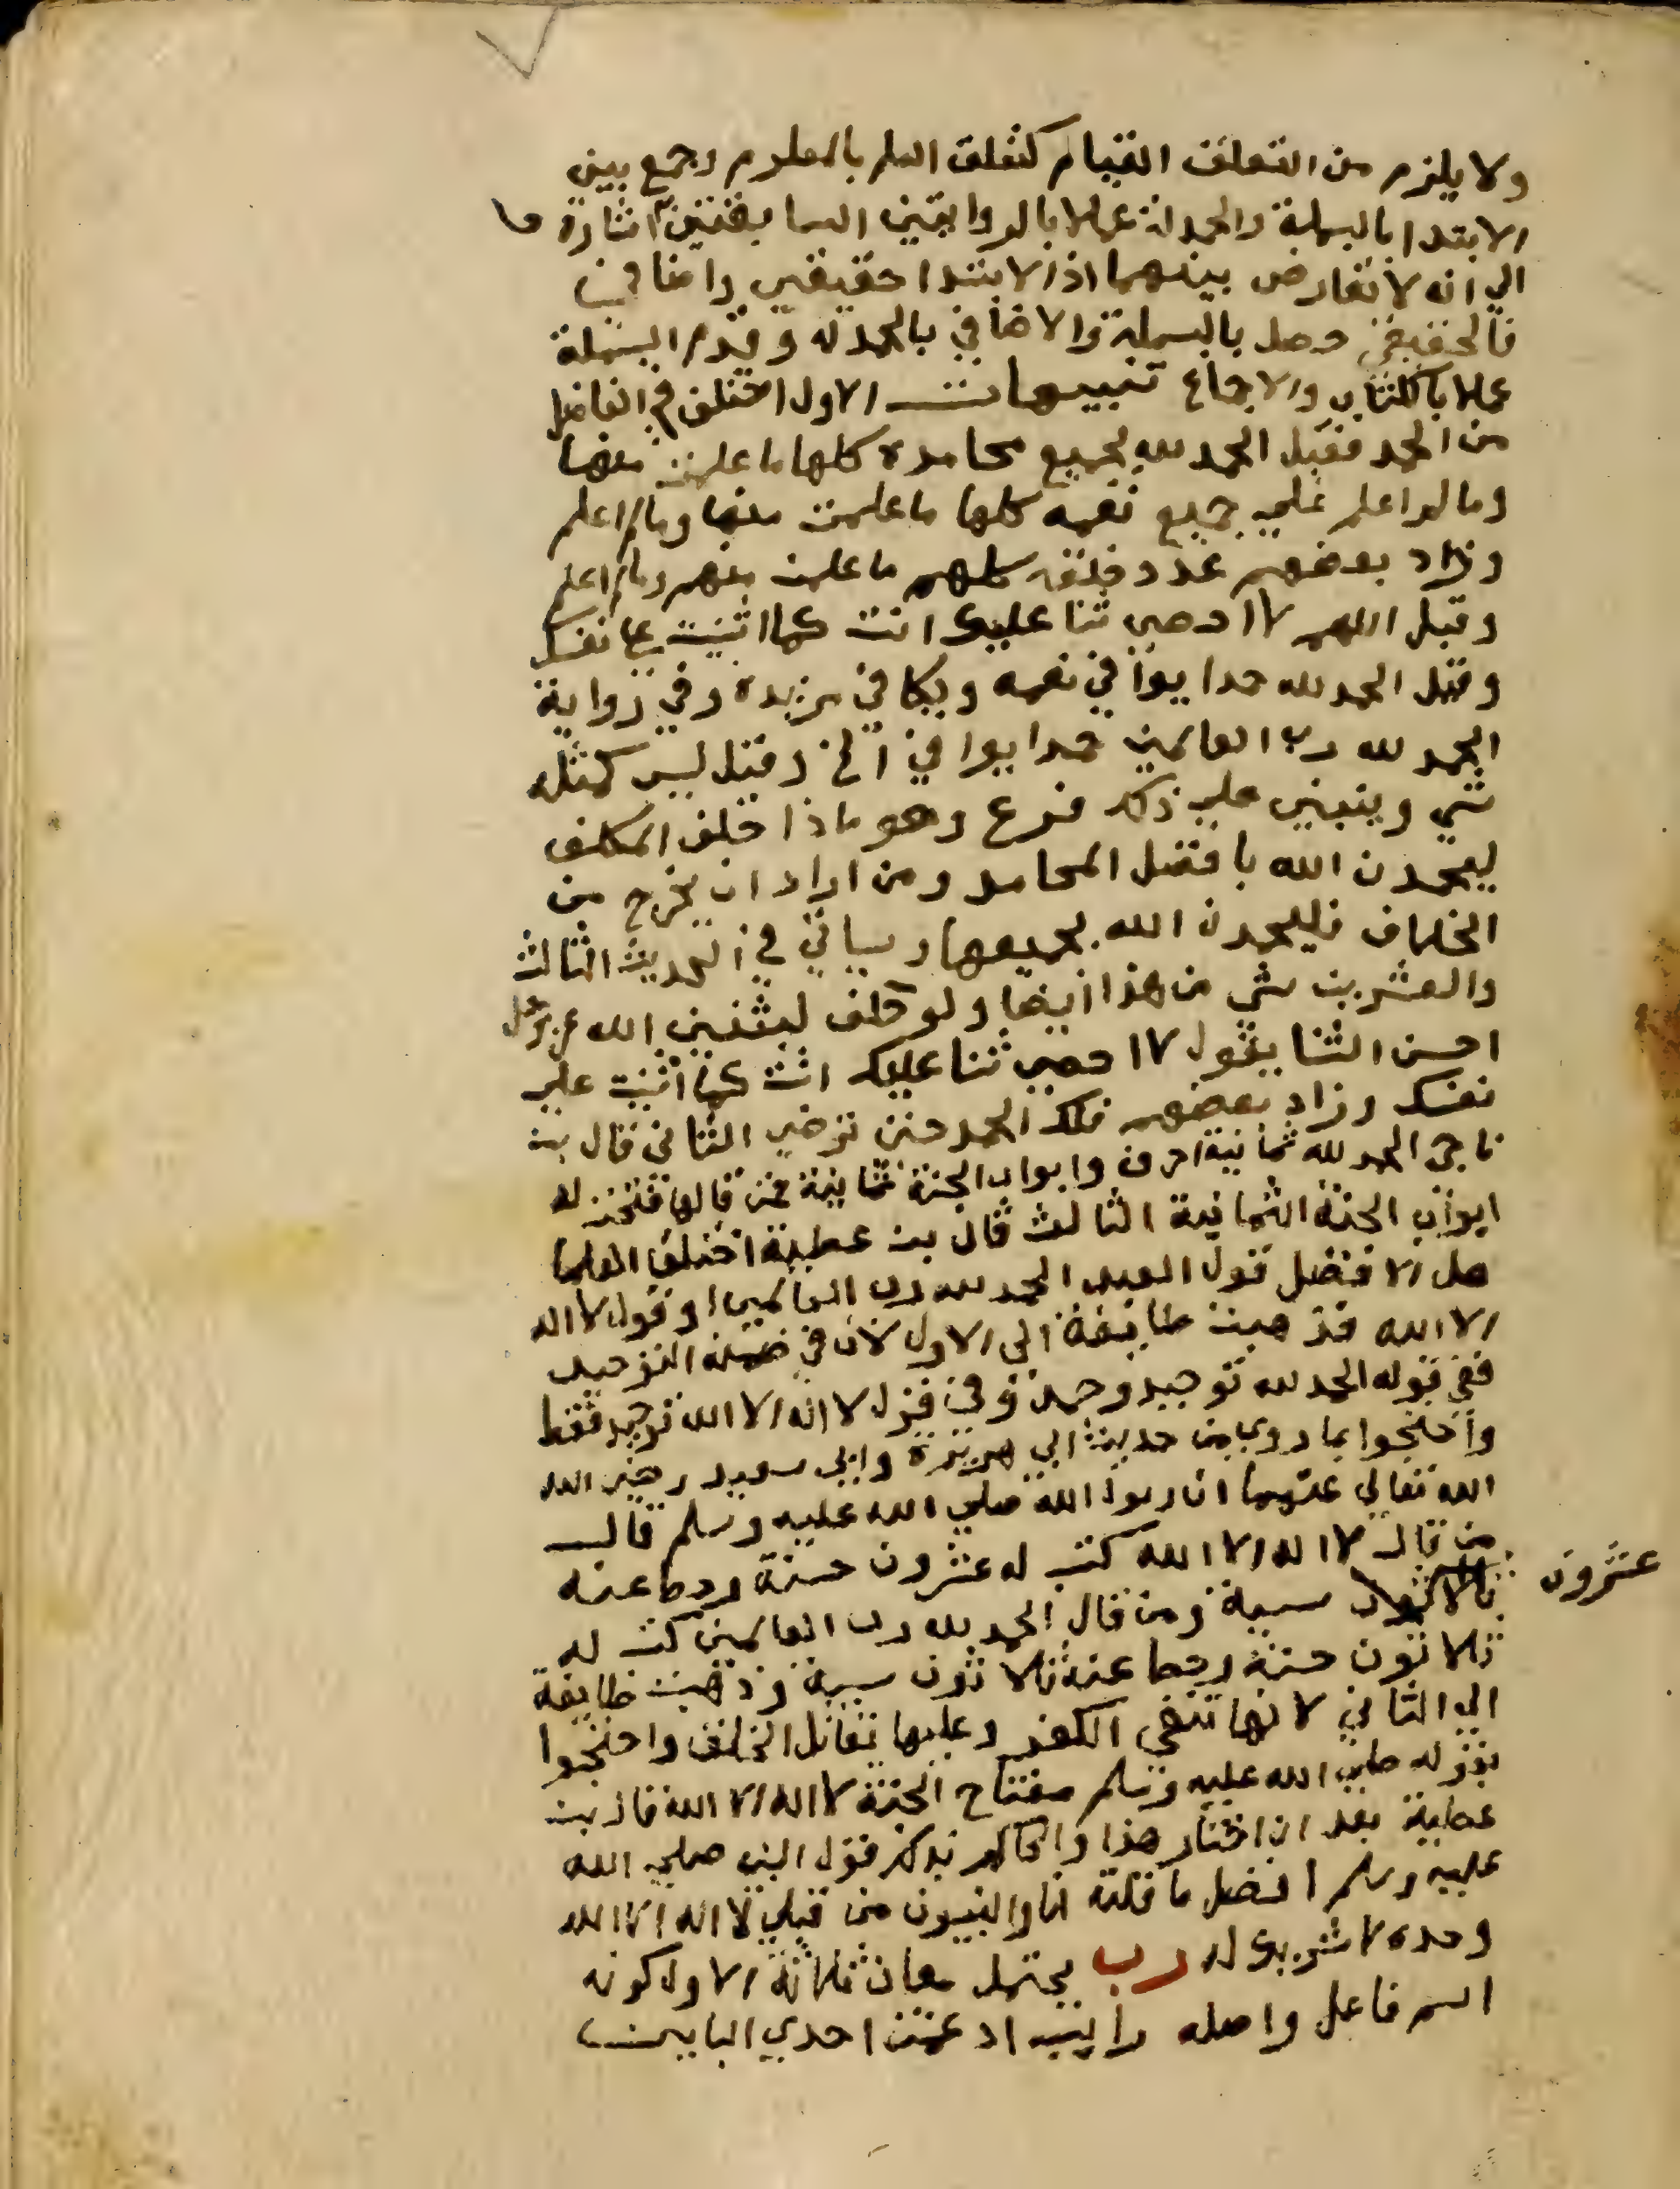 ولا يلزم من التعلق القيام كتعلق العلم بالمعلوم وجمع بين
الابتدا بالبسملة والحمدلة عملا بالروايتين السابقتين اشارة
الي انه لا تعارض بينهما اذ الابتدا حقيقي واضافي
فالحقيقي حصل بالبسملة والاضافي بالحمدلة وقدم البسملة
عملا بالكتاب والاجماع تنبيهات الاول اختلف في الفاضل
من الحمد فقيل الحمد لله بجميع محامده كلها ما علمت منها
وما لم اعلم علي جميع نعمه كلها ما علمت منها وما لم اعلم
وزاد بعضهم عدد خلقه كلهم ما علمت منهم وما لم اعلم
وقيل اللهم لا احصي ثنا عليك انت كما اثنيت علي نفسك
وقيل الحمد لله حمدا يوافي نعمه ويكافي مزيده وفي رواية
الحمد لله رب العالمين حمدا يوافي الخ وقيل ليس كمثله
شي وينبني علي ذلك فرع وهو ماذا حلف المكلف
ليحمدن الله بافضل المحامد ومن اراد ان يخرج من
الخلاف فليحمدن الله بجميعها وسياتي في الحديث الثالث
والعشرين شي من هذا ايضا ولو حلف ليثنين الله عز وجل
احسن الثنا يقول لا احصي ثنا عليك انت كما اثنيت علي
نفسك وزاد بعضهم فلك الحمد حتي ترضي الثاني قال بن
ناجي الحمد لله ثمانية احرف وابواب الجنة ثمانية فمن قالها فتحت له
ابواب الجنة الثمانية الثالث قال بن عطية اختلف العلما
هل الافضل قول العبد الحمد لله رب العالمين او قول لا اله
الا الله فذهبت طايفة الي الاول لان في ضمنه التوحيد
ففي قوله الحمد لله توحيد وحمد وفي قول لا اله الا الله توحيد فقط
واحتجوا بما روي من حديث ابي هريرة وابي سعيد رضي الله
الله تعالي عنهما ان رسول الله صلي الله عليه وسلم قال
من قال لا اله الا الله كتب له عشرون حسنة وحط عنه
عشرون
سيية ومن قال الحمد لله رب العالمين كتب له
ثلاثون حسنة وحط عنه ثلاثون سيية وذهبت طايفة
الي الثاني لانها تنفي الكفر وعليها تقاتل الخلق واحتجوا
بقوله صلي الله عليه وسلم مفتاح الجنة لا اله الا الله قال بن
عطية بعد ان اختار هذا والحاكم بذلك قول النبي صلي الله
عليه وسلم افضل ما قلته انا والنبيون من قبلي لا اله الا الله
وحده لا شريك له رب يحتمل معان ثلاثة الاول كونه
اسم فاعل واصله رابب ادغمت احدي البايين